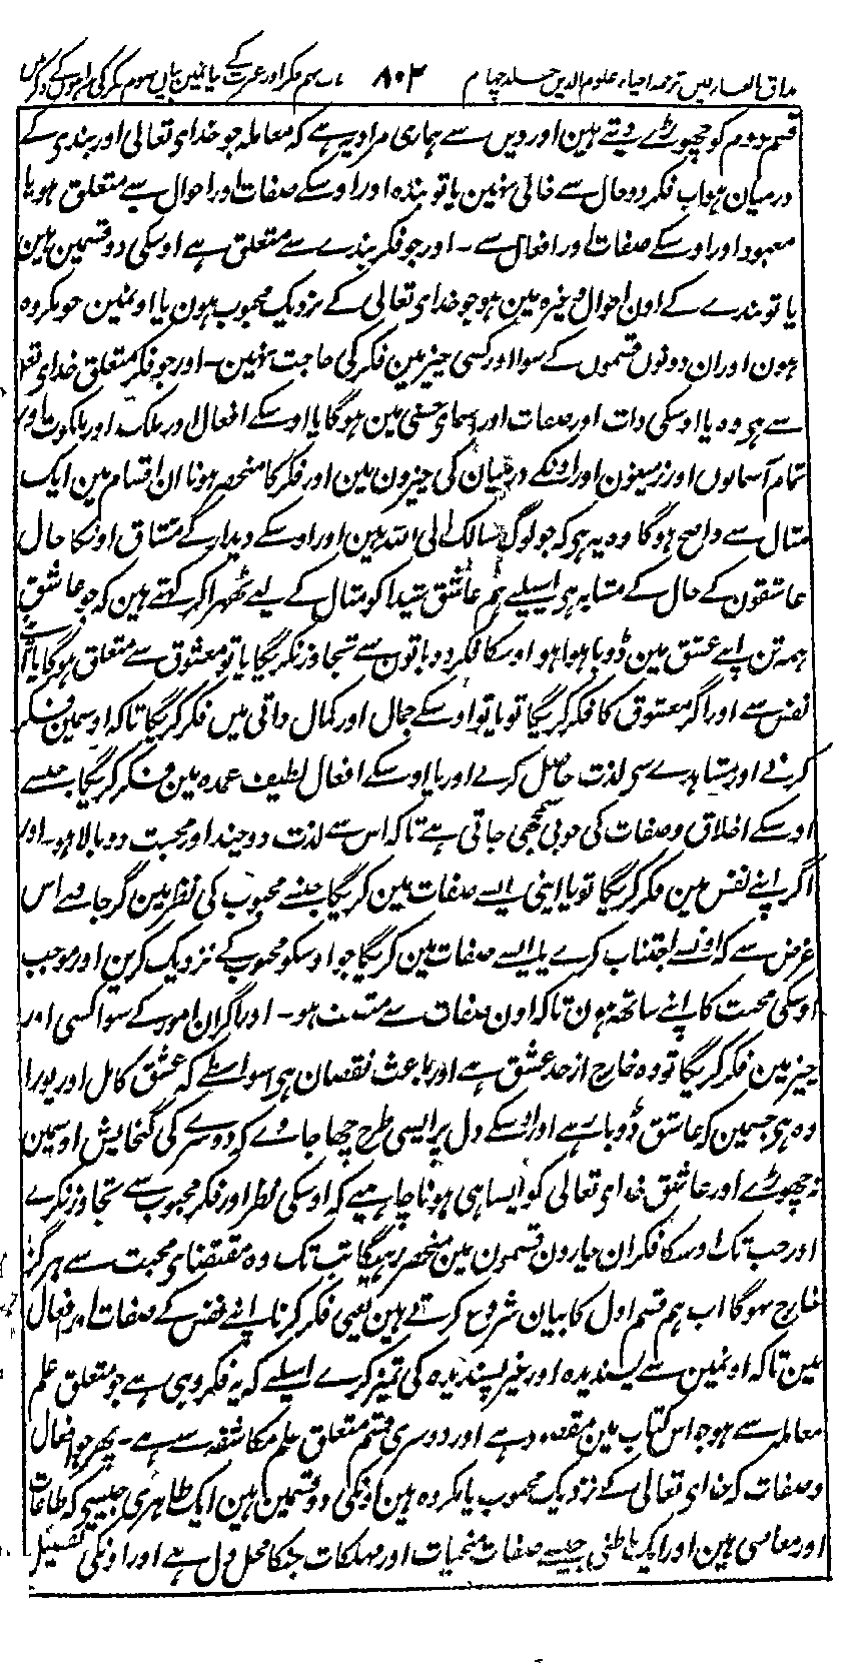 مذاق العارفین ترجمہ احیاء علوم الدین جلد چہارم ۸۰۲ باب نہم فکر اور عبرت کے بیان
قسم دوم کو چھوڑے دیتے ہین اور دیں سے ہماری مراد یہ ہے کہ معاملہ جو خدای تعالی اور بندی کے
درمیان ہو اب فکر دو حال سے خالی نہین یا تو بندہ اور اوسکے صفات اور احوال سے متعلق ہو یا
معبود اور اوسکے صفات اور افعال سے ۔ اور جو فکر بندے سے متعلق ہے اوسکی دو قسمین ہین
یا تو بندے کے اون احوال وغیرہ مین ہو جو خدای تعالی کے نزدیک محبوب ہون یا اونمین جو مکروہ
ہون اور ان دونوں قسموں کے سوا اور کسی چیز مین فکر کی حاجت نہین ۔ اور جو فکر متعلق خدای تعا
سے ہو وہ یا اوسکی ذات اور صفات اور اسمای حسنی مین ہوگا یا اوسکے افعال اور ملک اور ملکوت اور
تمام آسمانوں اور زمینون اور اونکے درمیان کی چیزون مین اور فکر کا منحصر ہونا ان اقسام مین ایک
مثال سے واضح ہوگا وہ یہ ہی کہ جو لوگ سالک الی اللہ ہین اور اوسکے دیدار کے مشتاق اونکا حال
عاشقون کے حال کے مشابہ ہی اسیلیے ہم عاشق شیدا کو مثال کے لیے ٹھہرا کر کہتے ہین کہ جو عاشق
ہمہ تن اپنے عشق مین ڈوبا ہوا ہو اوسکا فکر دو باتون سے تجاوز نکریگا یا تو معشوق سے متعلق ہوگا یا اپنے
نفس سے اور اگر معشوق کا فکر کریگا تو یا تو اوسکے جمال اور کمال ذاتی میں فکر کریگا تاکہ اوسمین فکر
کرنے اور مشاہدے سے لذت حاصل کرے اور یا اوسکے افعال لطیف عمدہ مین فکر کریگا جنسے
اوسکے اخلاق و صفات کی خوبی سمجھی جاتی ہے تاکہ اس سے لذت دو چند اور محبت دوبالا ہو ۔ اور
اگر اپنے نفس مین فکر کریگا تو یا اپنی ایسے صفات مین کریگا جنسے محبوب کی نظر مین گر جاوے اس
غرض سے کہ اونسے اجتناب کرے یا ایسے صفات مین کریگا جو اوسکو محبوب کے نزدیک کرین اور موجب
اوسکی محبت کا اپنے ساتھ ہون تاکہ اون صفات سے متصف ہو ۔ اور اگر ان امور کے سوا کسی اور
چیز مین فکر کریگا تو وہ خارج از حد عشق ہے اور باعث نقصان ہی اسواسطے کہ عشق کامل اور پورا
وہ ہی جسمین کہ عاشق ڈوبا رہے اور اوسکے دل پر ایسی طرح چھا جاوے کہ دوسرے کی گنجایش اوسمین
نہ چھوڑے اور عاشق خدای تعالی کو ایسا ہی ہونا چاہیے کہ اوسکی نظر اور فکر محبوب سے تجاوز نکرے
اور جب تک اوسکا فکر ان چارون قسمون مین منحصر رہیگا تب تک وہ مقتضای محبت سے ہرگز
خارج نہوگا اب ہم قسم اول کا بیان شروع کرتے ہین یعنی فکر کرنا اپنے نفس کے صفات اور افعال
مین تاکہ اونمین سے پسندیدہ اور غیر پسندیدہ کی تمیز کرے اسیلے کہ یہ فکر وہی ہے جو متعلق علم
معاملہ سے ہو جو اس کتاب مین مقصود ہے اور دوسری قسم متعلق علم مکاشفہ سے ہے ۔ پھر جو افعال
وصفات کہ خدای تعالی کے نزدیک محبوب یا مکروہ ہین اونکی دو قسمین ہین ایک ظاہری جیسی کہ طاعات
اور معاصی ہین اور ایک باطنی جیسے صفات منجیات اور مہلکات جنکا محل دل ہے اور اونکی تفصیل